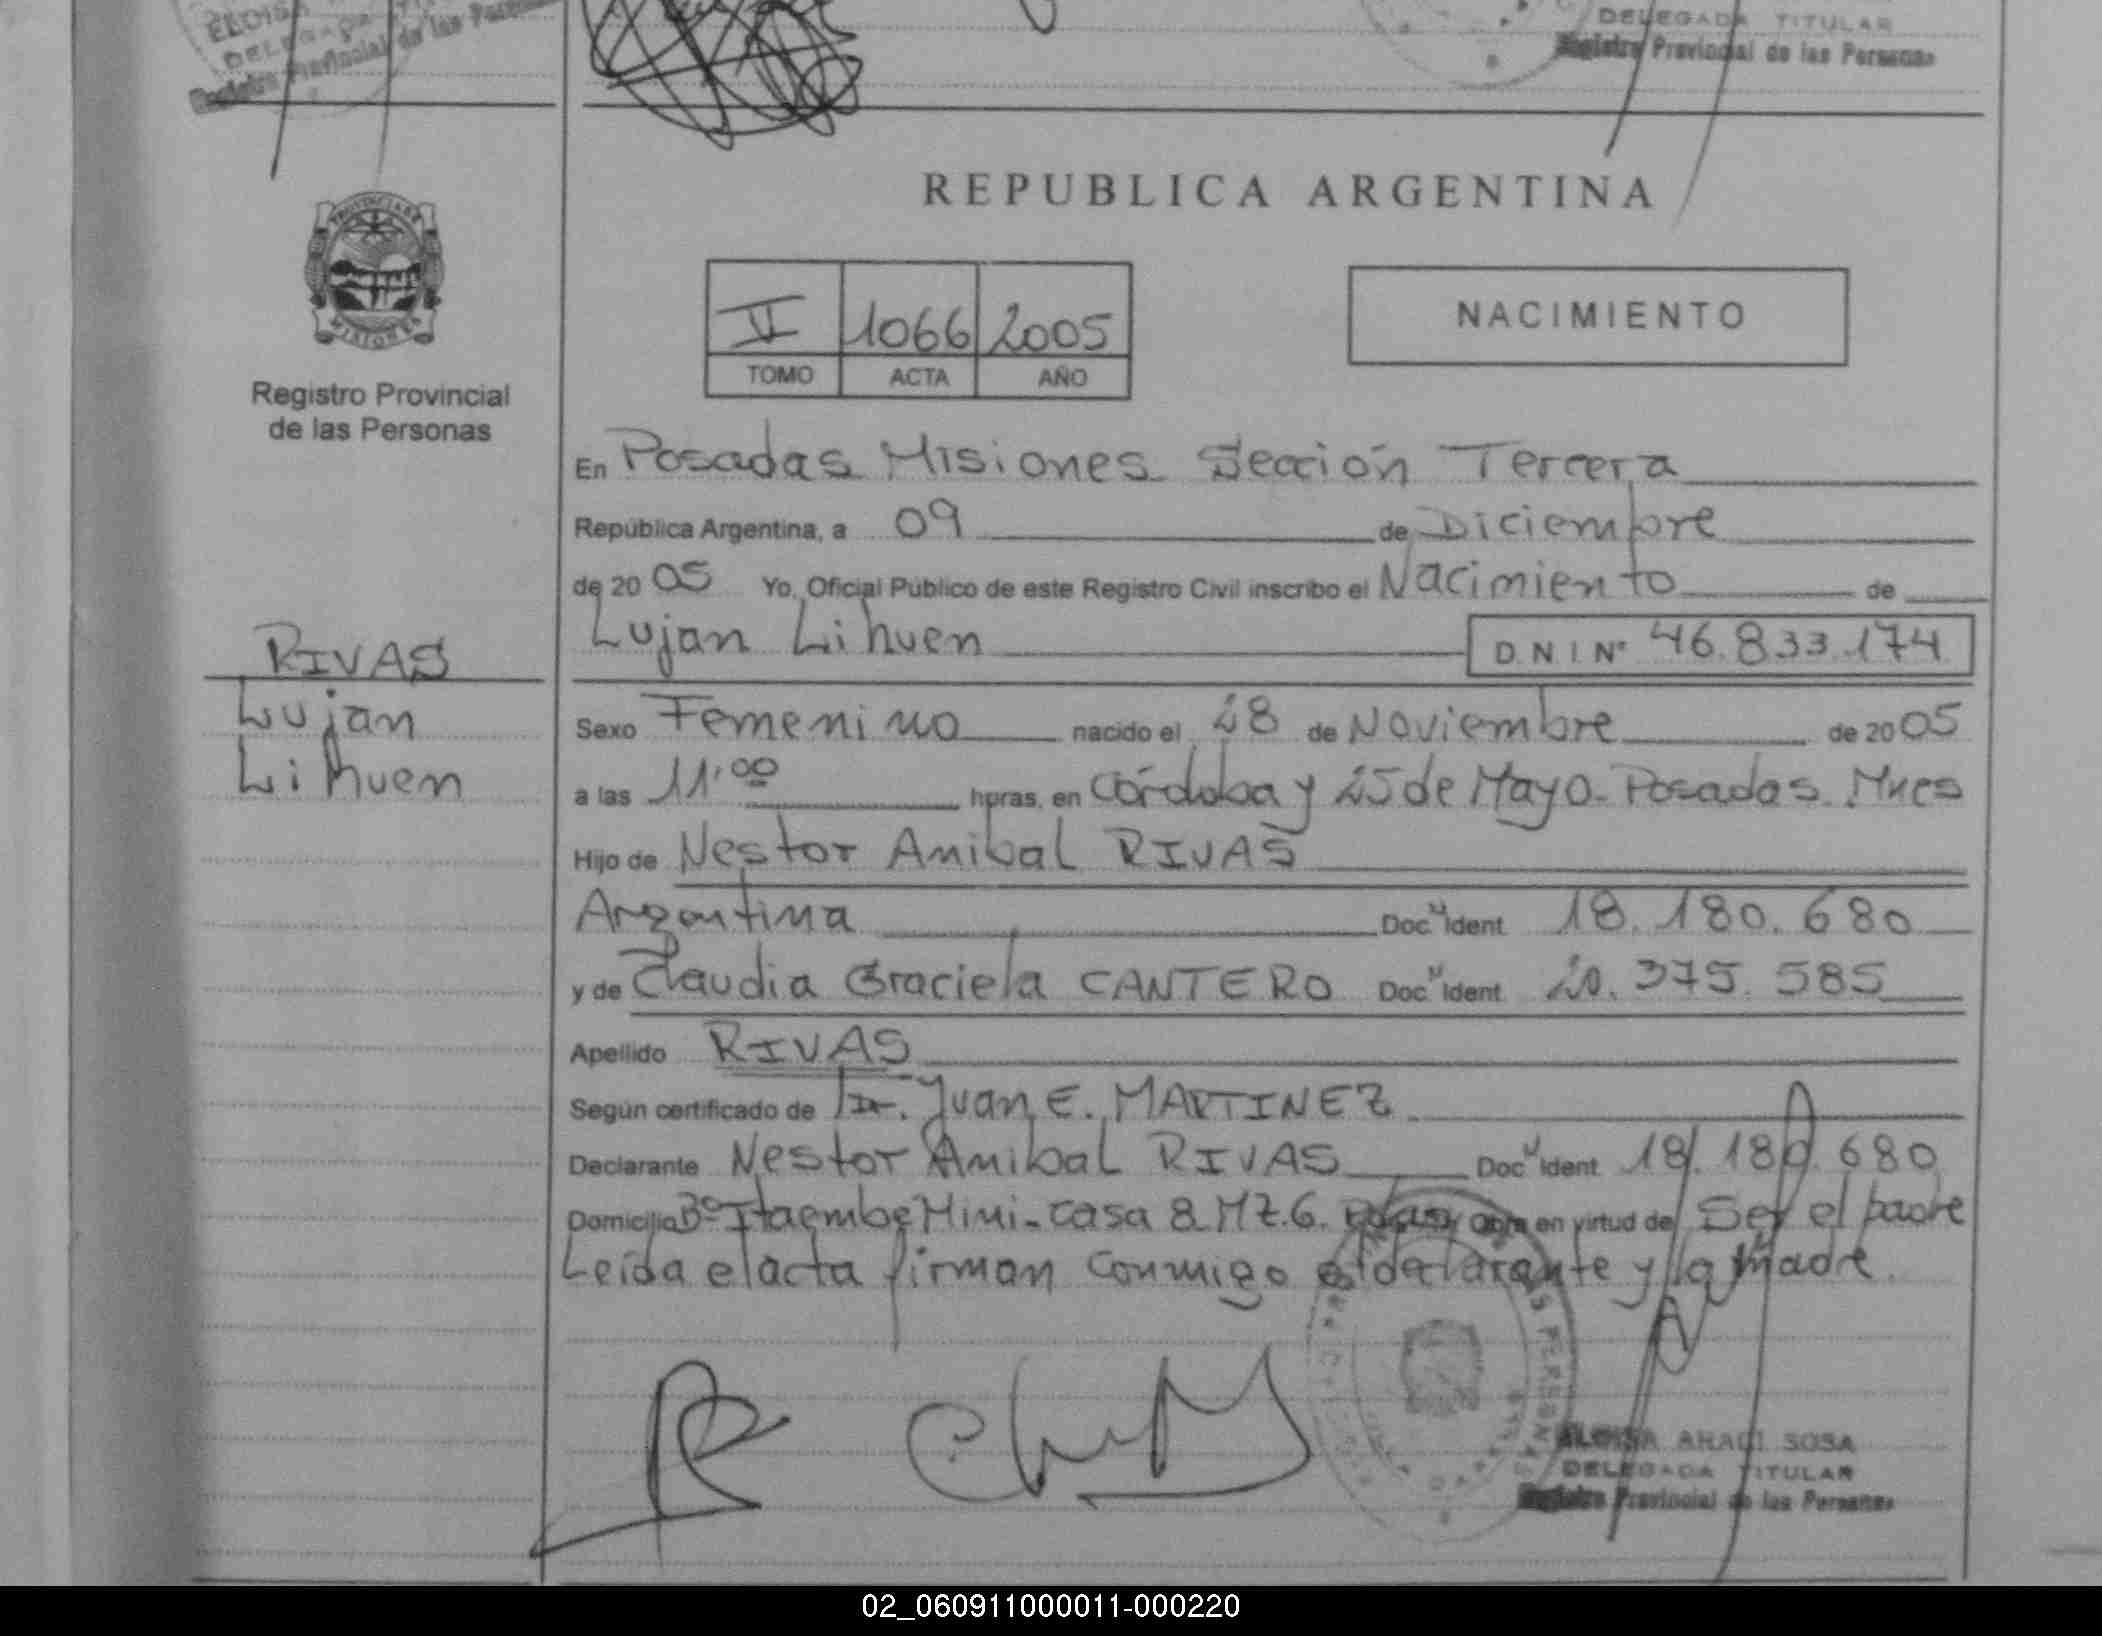 ELOISA
DELEGADA
Registro Provincial de las Personas
DELEGADA TITULAR
Registro Provincial de las Personas
REPUBLICA ARGENTINA
PROVINCIA DE
MISIONES
Registro Provincial
de las Personas
II 1066 2005
TOMO ACTA AÑO
NACIMIENTO
En Posadas Misiones Sección Tercera
República Argentina, a 09 de Diciembre
de 20 05 Yo, Oficial Público de este Registro Civil inscribo el Nacimiento de
Lujan Lihuen D.N.I Nº 46.833.174
RIVAS
Lujan
Lihuen
Sexo Femenino nacido el 28 de Noviembre de 20 05
a las 11:00 horas, en Córdoba y 25 de Mayo - Posadas Mnes
Hijo de Nestor Anibal RIVAS
Argentina Doc. Ident. 18.180.680
y de Claudia Graciela CANTERO Doc. Ident. 20.375.585
Apellido RIVAS
Según certificado de Dr. Juan E. MARTINEZ
Declarante Nestor Anibal RIVAS Doc. Ident. 18.180.680
Domicilio Bº Itaembe Mini - Casa 8 MZ.6. Obra en virtud de Ser el padre
Leída el acta firman conmigo el declarante y la Madre.
ELOISA ARACI SOSA
DELEGADA TITULAR
Registro Provincial de las Personas
02_060911000011-000220